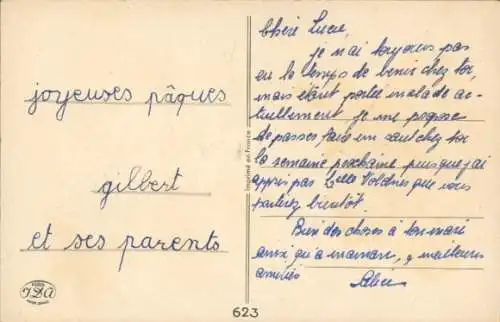 joyeuses pâques
gilbert
et ses parents
Chère Lucie,
je n'ai toujours pas
eu le temps de venir chez toi,
mais étant partie malade ac-
tuellement je me propose
de passer faire un saut chez toi
la semaine prochaine puisque j'ai
appris par que vous
partiez bientôt.
Bien des choses à ton mari
ainsi qu'à maman, meilleures
amitiés
Alice
Imprimé en France
623